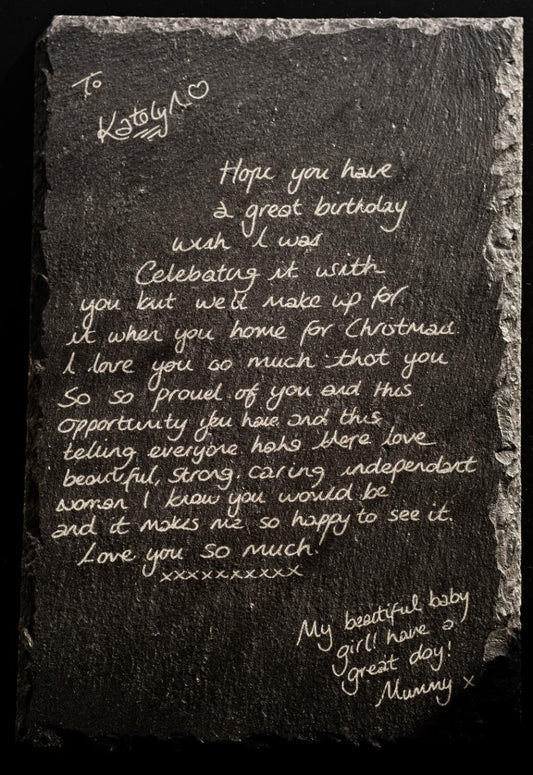 To
Katelyn
Hope you have
a great birthday
wish I was
Celebatng it with
you but we'll make up for
it when you home for Christmas
I love you so much that you
So so proud of you and this
opportunity you have and this
telling everyone haha there love
beautiful, strong, caring independant
woman I know you would be
and it makes me so happy to see it.
Love you so much.
xxxxxxxxxx
My beatiful baby
girl! have a
great day!
Mummy x